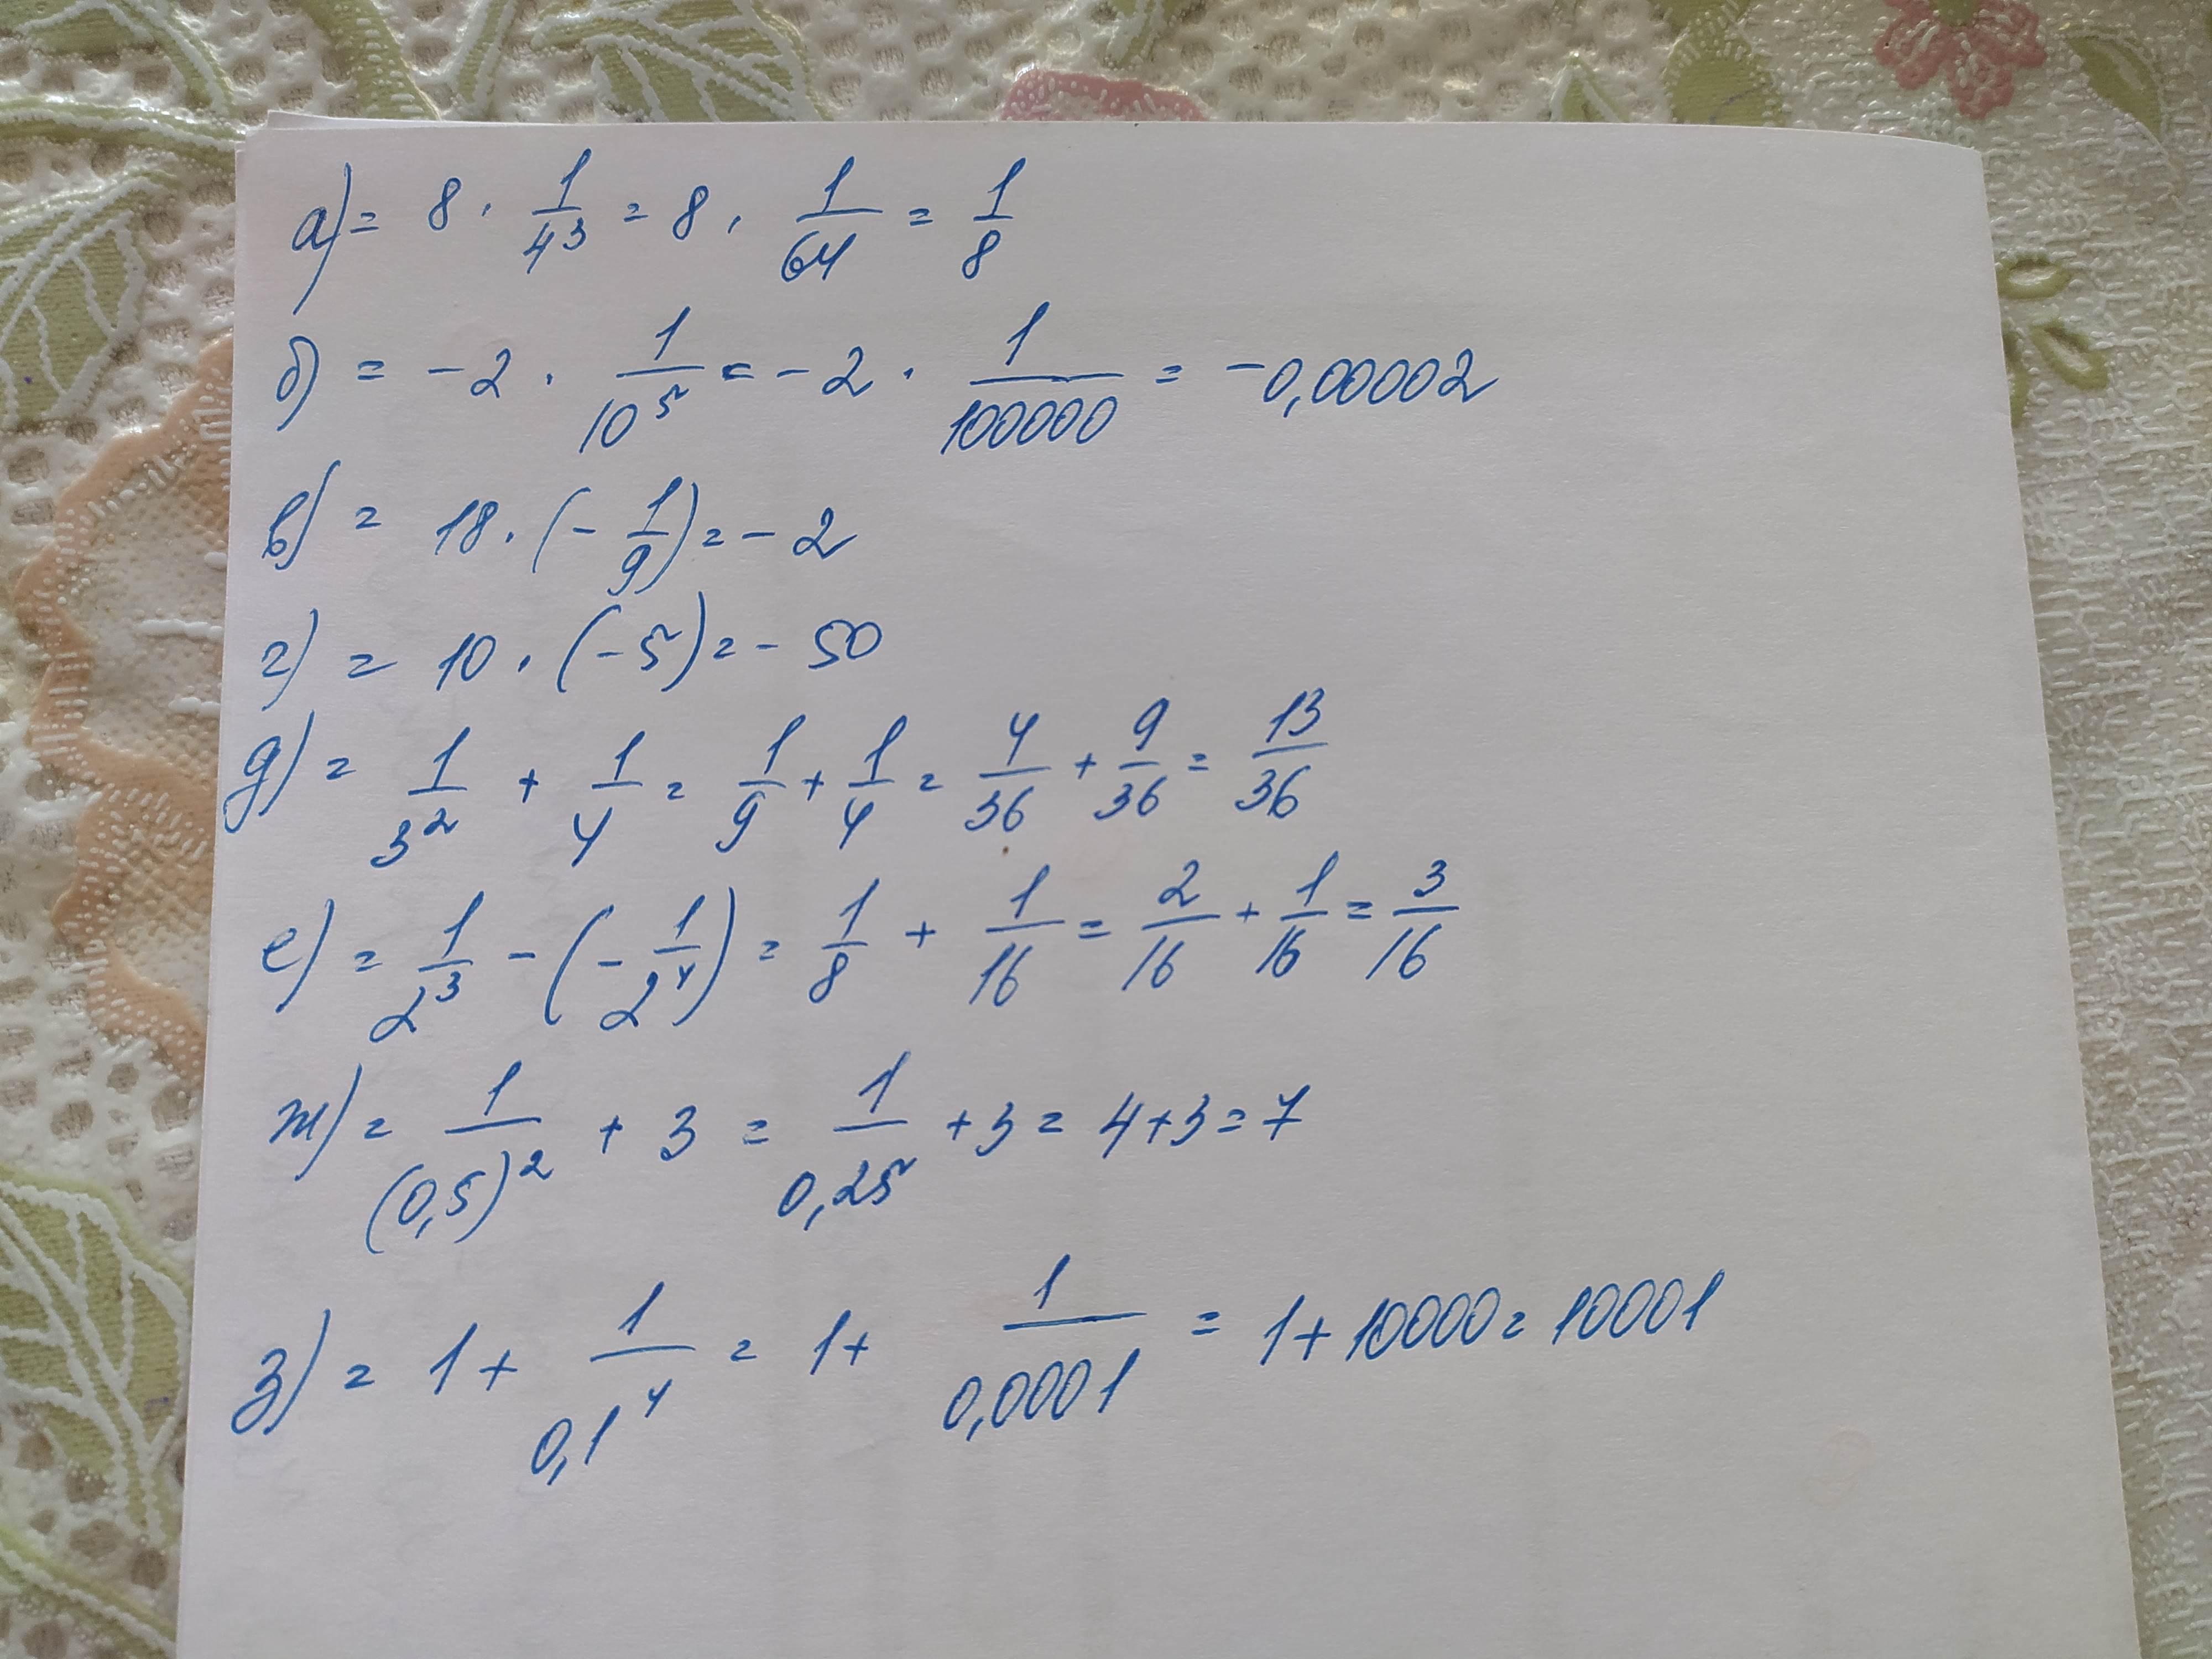 а) = 8 · 1/4³ = 8 · 1/64 = 1/8
б) = -2 · 1/10⁵ = -2 · 1/100000 = -0,00002
в) = 18 · (-1/9) = -2
г) = 10 · (-5) = -50
д) = 1/3² + 1/4 = 1/9 + 1/4 = 4/36 + 9/36 = 13/36
е) = 1/2³ - (-1/2⁴) = 1/8 + 1/16 = 2/16 + 1/16 = 3/16
ж) = 1/(0,5)² + 3 = 1/0,25 + 3 = 4+3 = 7
з) = 1 + 1/0,1⁴ = 1 + 1/0,0001 = 1 + 10000 = 10001